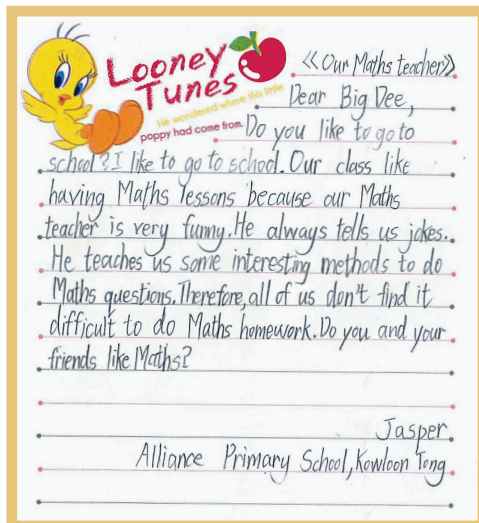 Looney
Tunes
He wondered where this little
poppy had come from.
《Our Maths teacher》
Dear Big Dee,
Do you like to go to
school? I like to go to school. Our class like
having Maths lessons because our Maths
teacher is very funny. He always tells us jokes.
He teaches us some interesting methods to do
Maths questions. Therefore, all of us don't find it
difficult to do Maths homework. Do you and your
friends like Maths?
Jasper
Alliance Primary School, Kowloon Tong